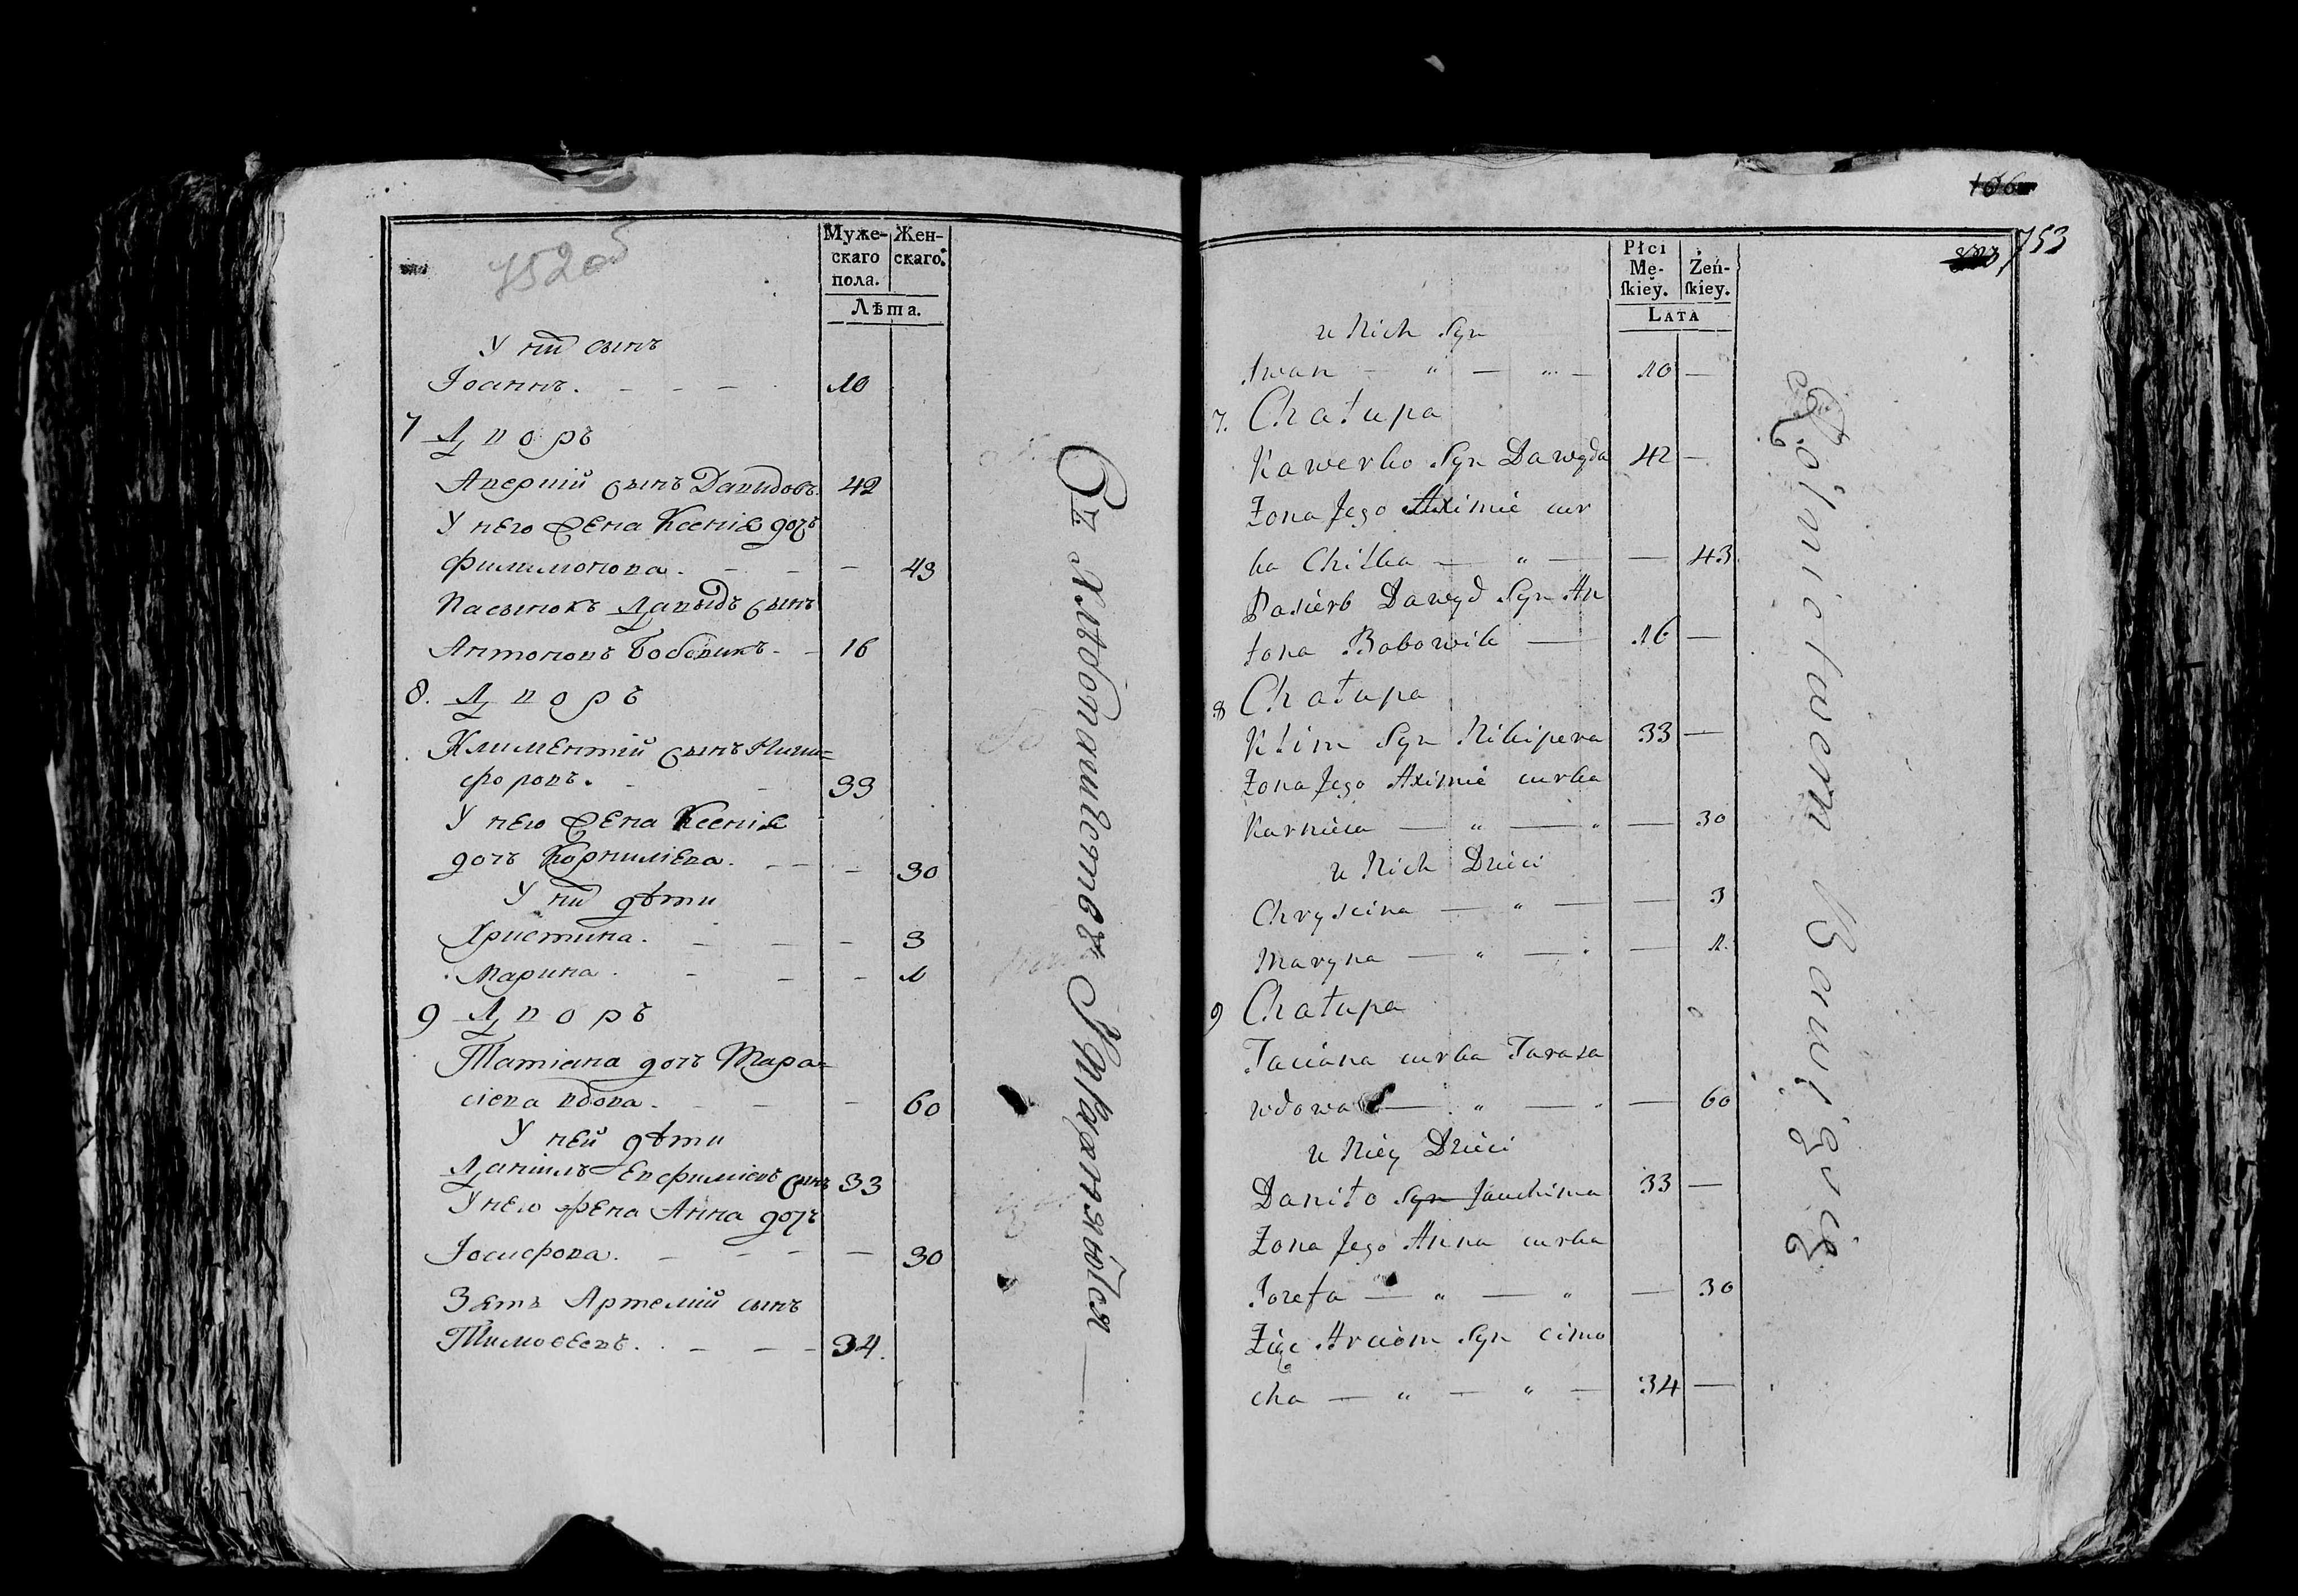 752об
Муже-
скаго
пола.
Жен-
скаго.
Лѣта.
У них сынъ
Іоаннъ. - - - 10
7 Дворъ
Аверкій сынъ Давидовъ. 42
У него жена Ксенія дочь
Филимонова. - - - 43
Пасынокъ Давыдъ сынъ
Антоновъ Бобовикъ - - 16
8. Дворъ
Климентій сынъ Ники=
форовъ. - - 33
У него жена Ксенія
дочь Корниліева. - - - 30
У них дѣти
Христина. - - - 3
Марина. - - - 1
9 Дворъ
Татіана дочь Тара=
сіева вдова. - - - 60
У ней дѣти
Даніилъ Евфиміевъ сынъ 33
У него жена Анна дочь
Іосифова. - - - - 30
Зять Артемій сынъ
Тимоѳеевъ. - - - 34.
Въ Хлѣбопашествѣ Упражняются —
753
Płci
Mę-
skiey.
Żeń-
skiey.
LATA
u Nich Syn
Iwan — „ — „ — 10 —
7. Chałupa
Kawerko Syn Dawyda 42 —
Żona Jego Aximié cur
ka Chilka — „ — — 43
Pasierb Dawyd Syn An
tona Bobowik — 16 —
8 Chałupa
Klim Syn Nikipera 33 —
Żona Jego Aximié curka
Karnieia — „ — „ — 30
u Nich Dzieci
Chryscina — „ — — 3
Maryna — „ — „ — 1.
9 Chałupa
Taciana curka Tarasa
wdowa — „ — „ — 60
u Niéy Dzieci
Daniło Syn Jauchima 33 —
Żona Jego Anna curka
Jozefa — „ — „ — 30
Zięć Arciom Syn Cimo
cha — „ — „ — 34 —
Rolnictwem Bawią się